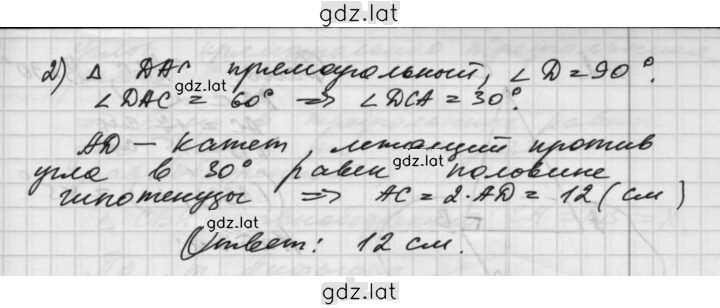 gdz.lat
2) Δ DAC прямоугольный, ∠D = 90°.
gdz.lat
∠DAC = 60° => ∠DCA = 30°.
AD – катет, лежащий против
gdz.lat
угла в 30° равен половине
гипотенузы => AC = 2·AD = 12 (см)
gdz.lat
Ответ: 12 см.
gdz.lat